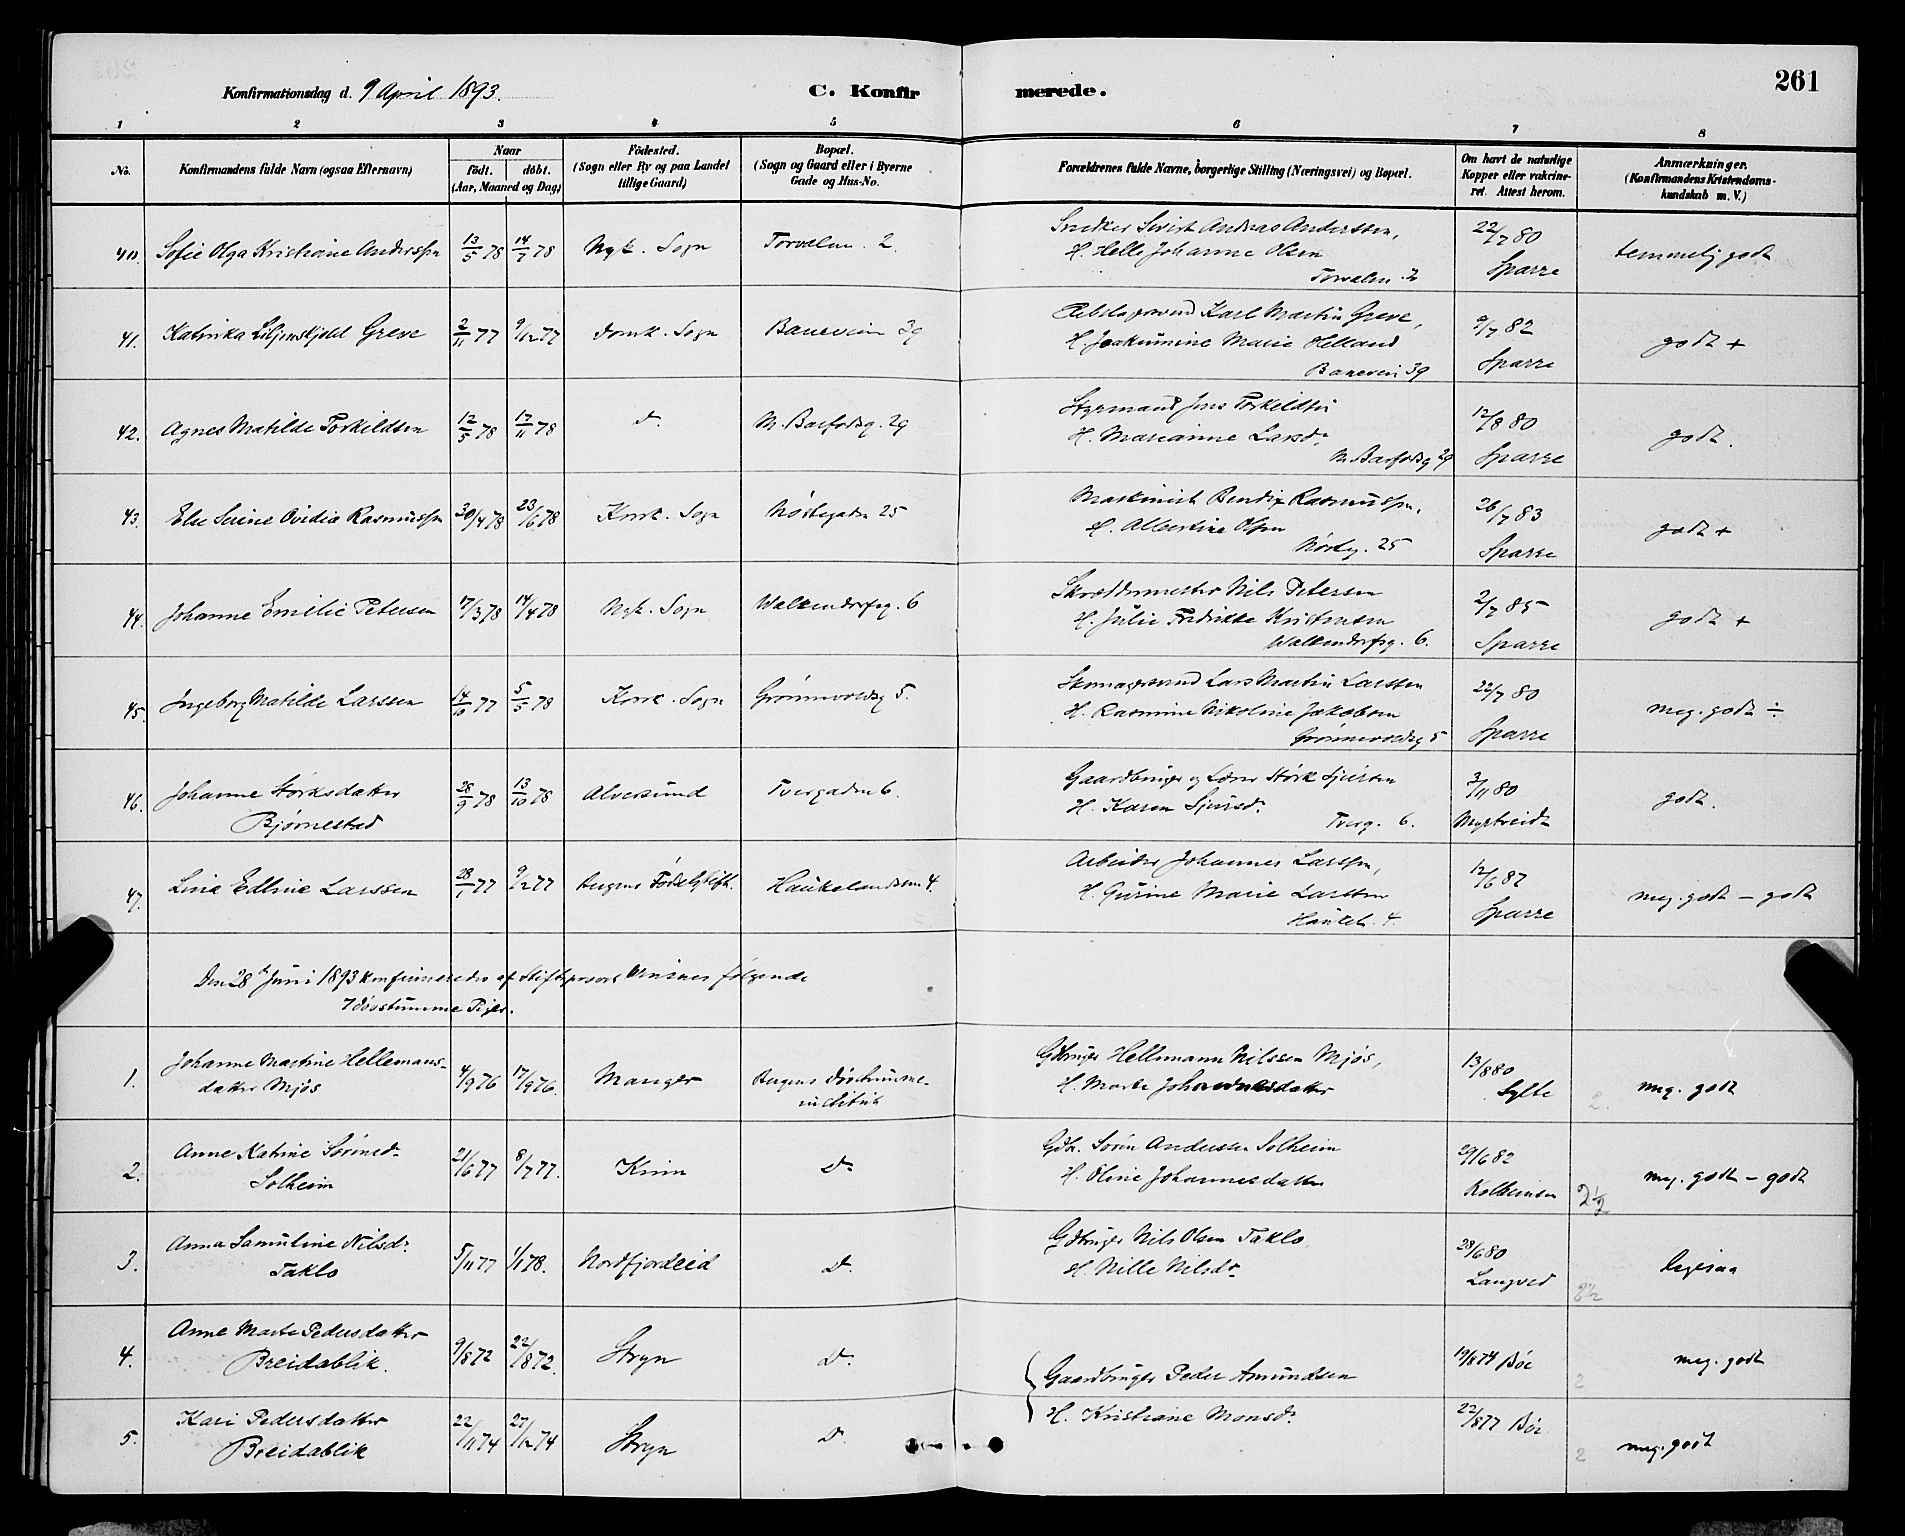 261
Konfirmationsdag d. 9 April 1893. C. Konfir merede.
1 2 3 4 5 6 7 8
No. Konfirmandens fulde Navn (ogsaa Efternavn) Naar født. døbt. (Aar, Maaned og Dag) Fødested. (Sogn eller By og paa Landet tillige Gaard) Bopæl. (Sogn og Gaard eller i Byerne Gade og Hus-No. Forældrenes fulde Navne, borgerlige Stilling (Næringsvei) og Bopæl. Om havt de naturlige Kopper eller vakcineret. Attest herom. Anmærkninger. (Konfirmandens Kristendomskundskab m. V.)
40. Sofie Olga Kristiane Anderssen 13/5 78 14/7 78 Nyk. Sogn Torvalm. 2 Snedker Andreas Anderssen, 22/7 80
H. Helle Johanne Olsen Sparre temmelig godt
Torvalm. 2
41. Katinka Liljenskjold Greve 2/11 77 9/12 77 Domk. Sogn Baneveien 39 Karl Martin Greve, 9/7 82
H. Joakumine Marie Helland Sparre godt +
Banevei 39
42. Agnes Matilde Torkildsen 12/5 78 17/11 78 d. M. Barfodsg. 29 Styrmand Jens Torkeldsen 12/8 80
H. Marianne Larsd. Sparre godt.
M. Barfodsg 29
43. Else Serine Ovidia Rasmussen 30/4 78 23/6 78 Korsk. Sogn Nøstegaden 25 Maskinist Bendix Rasmussen, 26/7 83
H. Albertine Olsen Sparre godt +
Nøsteg. 25
44. Johanne Emilie Petersen 17/3 78 14/4 78 Nyk. Sogn Walkendorfsg. 6 Skræddermester Nils Petersen 2/7 85
H. Julie Fredrikke Kristensen Sparre godt +
Walkendorfsg. 6.
45. Ingeborg Matilde Larssen 14/10 77 5/5 78 Korsk. Sogn Grønnevoldsg 5. Skomagersvend Lars Martin Larssen 22/7 80
H. Rasmine Nikoline Jakobsen Sparre meg. godt ÷
Grønnevoldsg 5
46. Johanne Størksdatter 28/9 78 13/10 78 Alversund Tvergaden 6. Gaardbruger og Lærer Størk Sjursen 3/11 80
Bjørnestad H. Karen Sjursd. Myrtveidt godt.
Tverg. 6.
47. Lina Edline Larssen 28/1 77 9/2 77 Bergens Fødselsstift. Haukelandsvn 4. Arbeider Johannes Larssen, 12/6 87
H. Gurine Marie Larssen Sparre meg. godt - godt
Haukel. 4
Den 28de Juni 1893 konfirmeredes af Stiftsprovst følgende
7 døvstumme Piger.
1. Johanne Martine Hellemans- 4/9 76 17/9 76. Manger Bergens døvstumme- Gdbruger Hellemann Nilssen Mjøs, 13/8 80
datter Mjøs institut H. Marta Johannesdatter Sylte 2. meg. godt
2. Anne Katrine Sørensd. 21/6 77 8/7 77. Kinn do Gdbr. Sørén Andersen Solheim 29/6 82
Solheim H. Oline Johannesdatter Kolbeinsen 2½ meg. godt - godt
3. Anna Samuline Nilsd. 5/11 77 1/1 78. Nordfjordeid d. Gdbruger Nils Olsen Taklo, 28/6 80
Taklo H. Nille Nilsdr. Langved 2½ ligesaa
4. Anne Marta Pedersdatter 9/8 72 22/8 72. Stryn d.
Breidablik. Gaardbruger Peder Amundsen 19/8 74 Bøe 2 meg. godt
5. Kari Pedersdatter 22/11 74 27/12 74 Stryn d. H. Kristiane Monsd. 22/8 77 Bøe
Breidablik 2 meg. godt